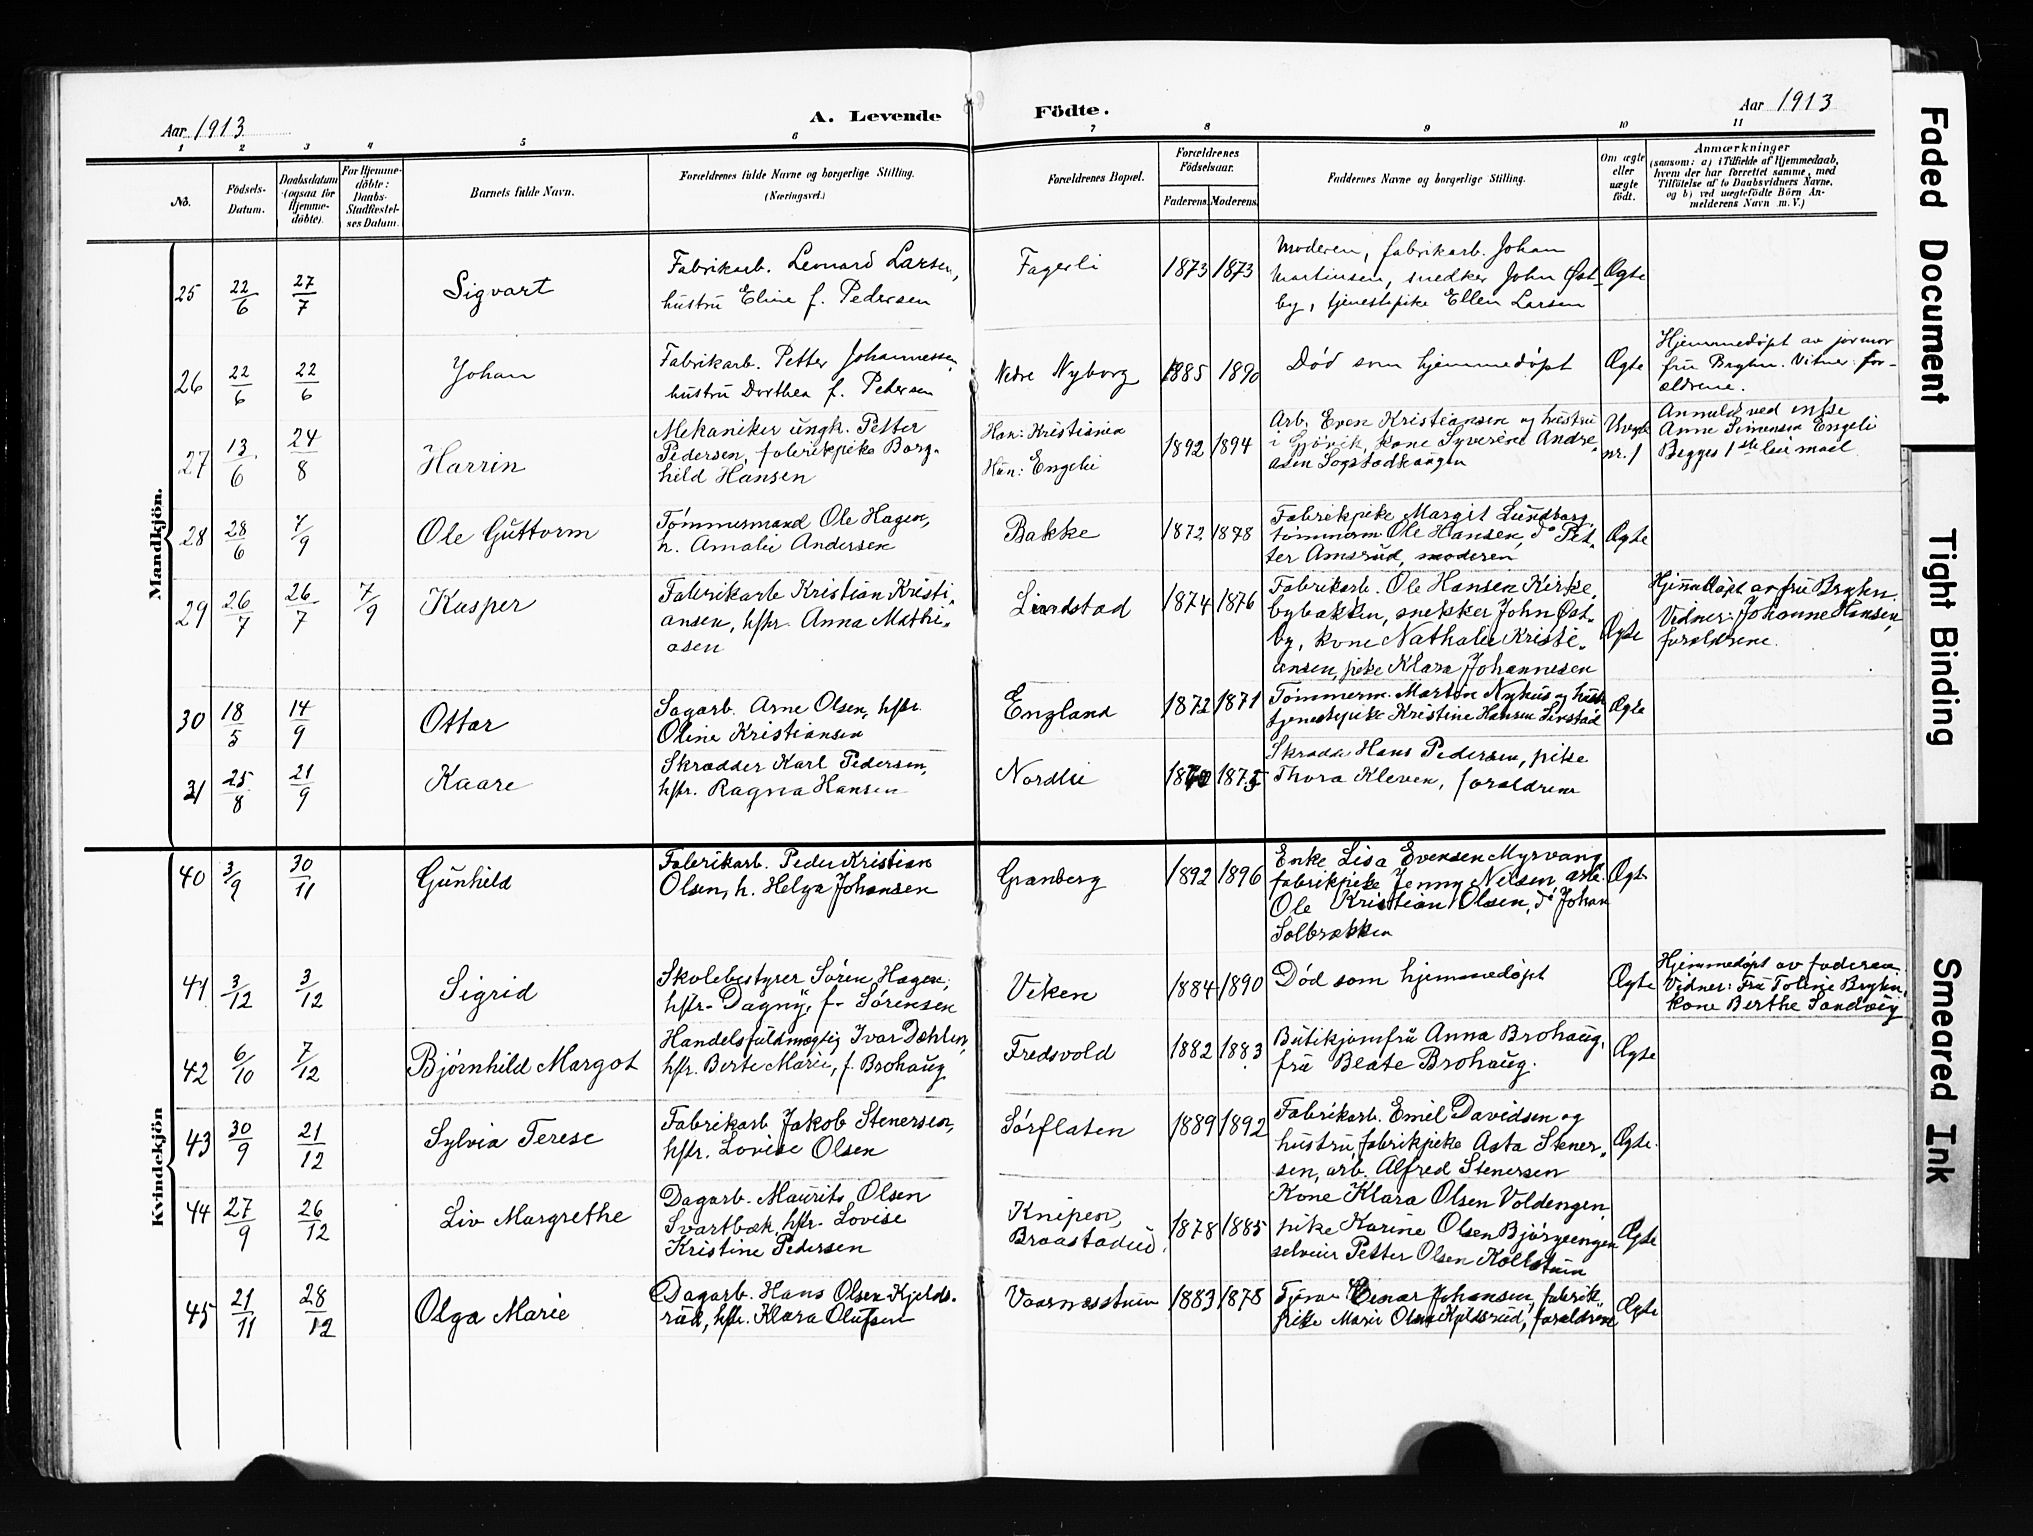 Aar 1913
A. Levende Födte.
Aar 1913
1 2 3 4 5 6 7 8 9 10 11
No.
Födsels-Datum.
Daabsdatum (ogsaa for Hjemmedöbte).
For Hjemmedöbte: Daabs-Stadfæstelses Datum.
Barnets fulde Navn.
Forældrenes fulde Navne og borgerlige Stilling. (Næringsvei.)
Forældrenes Bopæl.
Forældrenes Födselsaar.
Faderens. Moderens.
Faddernes Navne og borgerlige Stilling.
Om ægte eller uægte født.
Anmærkninger
(saasom: a) i Tilfælde af Hjemmedaab, hvem der har forrettet samme, med Tilföielse af to Daabsvidners Navne, og b) ved uægtefödte Börn Anmelderens Navn m. V.)
Mandkjön.
25 22/6 27/7 Sigvart
Fabrikarb. Leonard Larsen,
hustru Eline f. Pedersen
Fagerli 1873 1873
Moderen, fabrikarb. Johan
Martinsen, snedker John Øst-
by, tjenestepike Ellen Larsen
Ægte
26 22/6 22/6 Johan
Fabrikarb. Petter Johannessen,
hustru Dorthea f. Pedersen
Nedre Nyborg 1885 1890
Død som hjemmedøpt
Ægte
Hjemmedøpt av jormor
fru Bryhn. Vitner: for-
ældrene.
27 13/6 24/8 Harrin
Mekaniker ungk. Petter
Pedersen, fabrikpike Borg-
hild Hansen
Han: Kristiania
Hun: Engelie
1892 1894
Arb. Even Kristiansen og hustru
i Gjøvik, kone Syverine Andre-
asen Sogstadhaugen
Uægte
nr. 1
Anmeldt ved
Anne Simensen Engeli
Begges 1ste leiermaal
28 28/6 7/9 Ole Guttorm
Tømmermand Ole Hagen,
h. Amalie Andersen
Bakke 1872 1878
Fabrikpike Margit Lundborg,
tømmerm Ole Hansen, do Pet-
ter Amsrud, moderen
Ægte
29 26/7 26/7 7/9 Kasper
Fabrikarb Kristian Kristi-
ansen, hstr. Anna Mathi-
asen
Lindstad 1874 1876
Fabrikarb. Ole Hansen Kirke-
bybakken, snekker John Øst-
by, kone Nathalie Kristi-
ansen, pike Klara Johannesen
Ægte
Hjemmedøpt av fru Bryhn.
Vidner: Johanne Hansen,
forældrene.
30 18/5 14/9 Ottar
Sagarb. Arne Olsen, hstr.
Oline Kristiansen
England 1872 1871
Tømmerm. Martin Nyhus og hustr
tjenestepike Kristine Hansen Linstad
Ægte
31 25/8 21/9 Kaare
Skrædder Karl Pedersen,
hstr. Ragna Hansen
Nordlie 1875
Skrædder Hans Pedersen, pike
Thora Kleven, forældrene
Kvindekjön
40 3/9 30/11 Gunhild
Fabrikarb. Peder Kristian
Olsen, h. Helga Johansen
Granberg 1892 1896
Enke Lisa Evensen Myrvang,
fabrikpike Jenny Nilsen, arb.
Ole Kristian Olsen, do Johan
Solbrækken
Ægte
41 3/12 3/12 Sigrid
Skolebestyrer Søren Hagen,
hstr. Dagny, f. Sørensen
Viken 1884 1890
Død som hjemmedøpt
Ægte
Hjemmedøpt av faderen.
Vidner: Fru Toline Bryhn,
kone Berthe Sandvig
42 6/10 7/12 Bjørnhild Margot
Handelsfuldmægtig Ivar Dæhlen,
hstr. Berte Marie, f. Brohaug
Fredsvold 1882 1883
Butikjomfru Anna Brohaug,
fru Beate Brohaug.
Ægte
43 30/9 21/12 Sylvia Terese
Fabrikarb Jakob Stenersen,
hstr. Lovise Olsen
Sørflaten 1889 1892
Fabrikarb. Emil Davidsen og
hustru, fabrikpike Asta Stener-
sen, arb. Alfred Stenersen
Ægte.
44 27/9 26/12 Liv Margrethe
Dagarb. Maurits Olsen
Svartbæk, hstr. Lovise
Kristine Pedersen
Knipen,
Braastadeie
1878 1885
Kone Klara Olsen Voldengen,
pike Karine Olsen Bjørgeengen
selveier Petter Olsen Kollstuen
Ægte
45 21/11 28/12 Olga Marie
Dagarb. Hans Olsen Kjelds-
rud, hstr. Klara Olufsen
Vaarnæsstuen 1883 1878
Einar Johansen, fabrik
pike Marie Olsen Kjeldsrud, forældrene
Ægte
Faded Document
Tight Binding
Smeared Ink